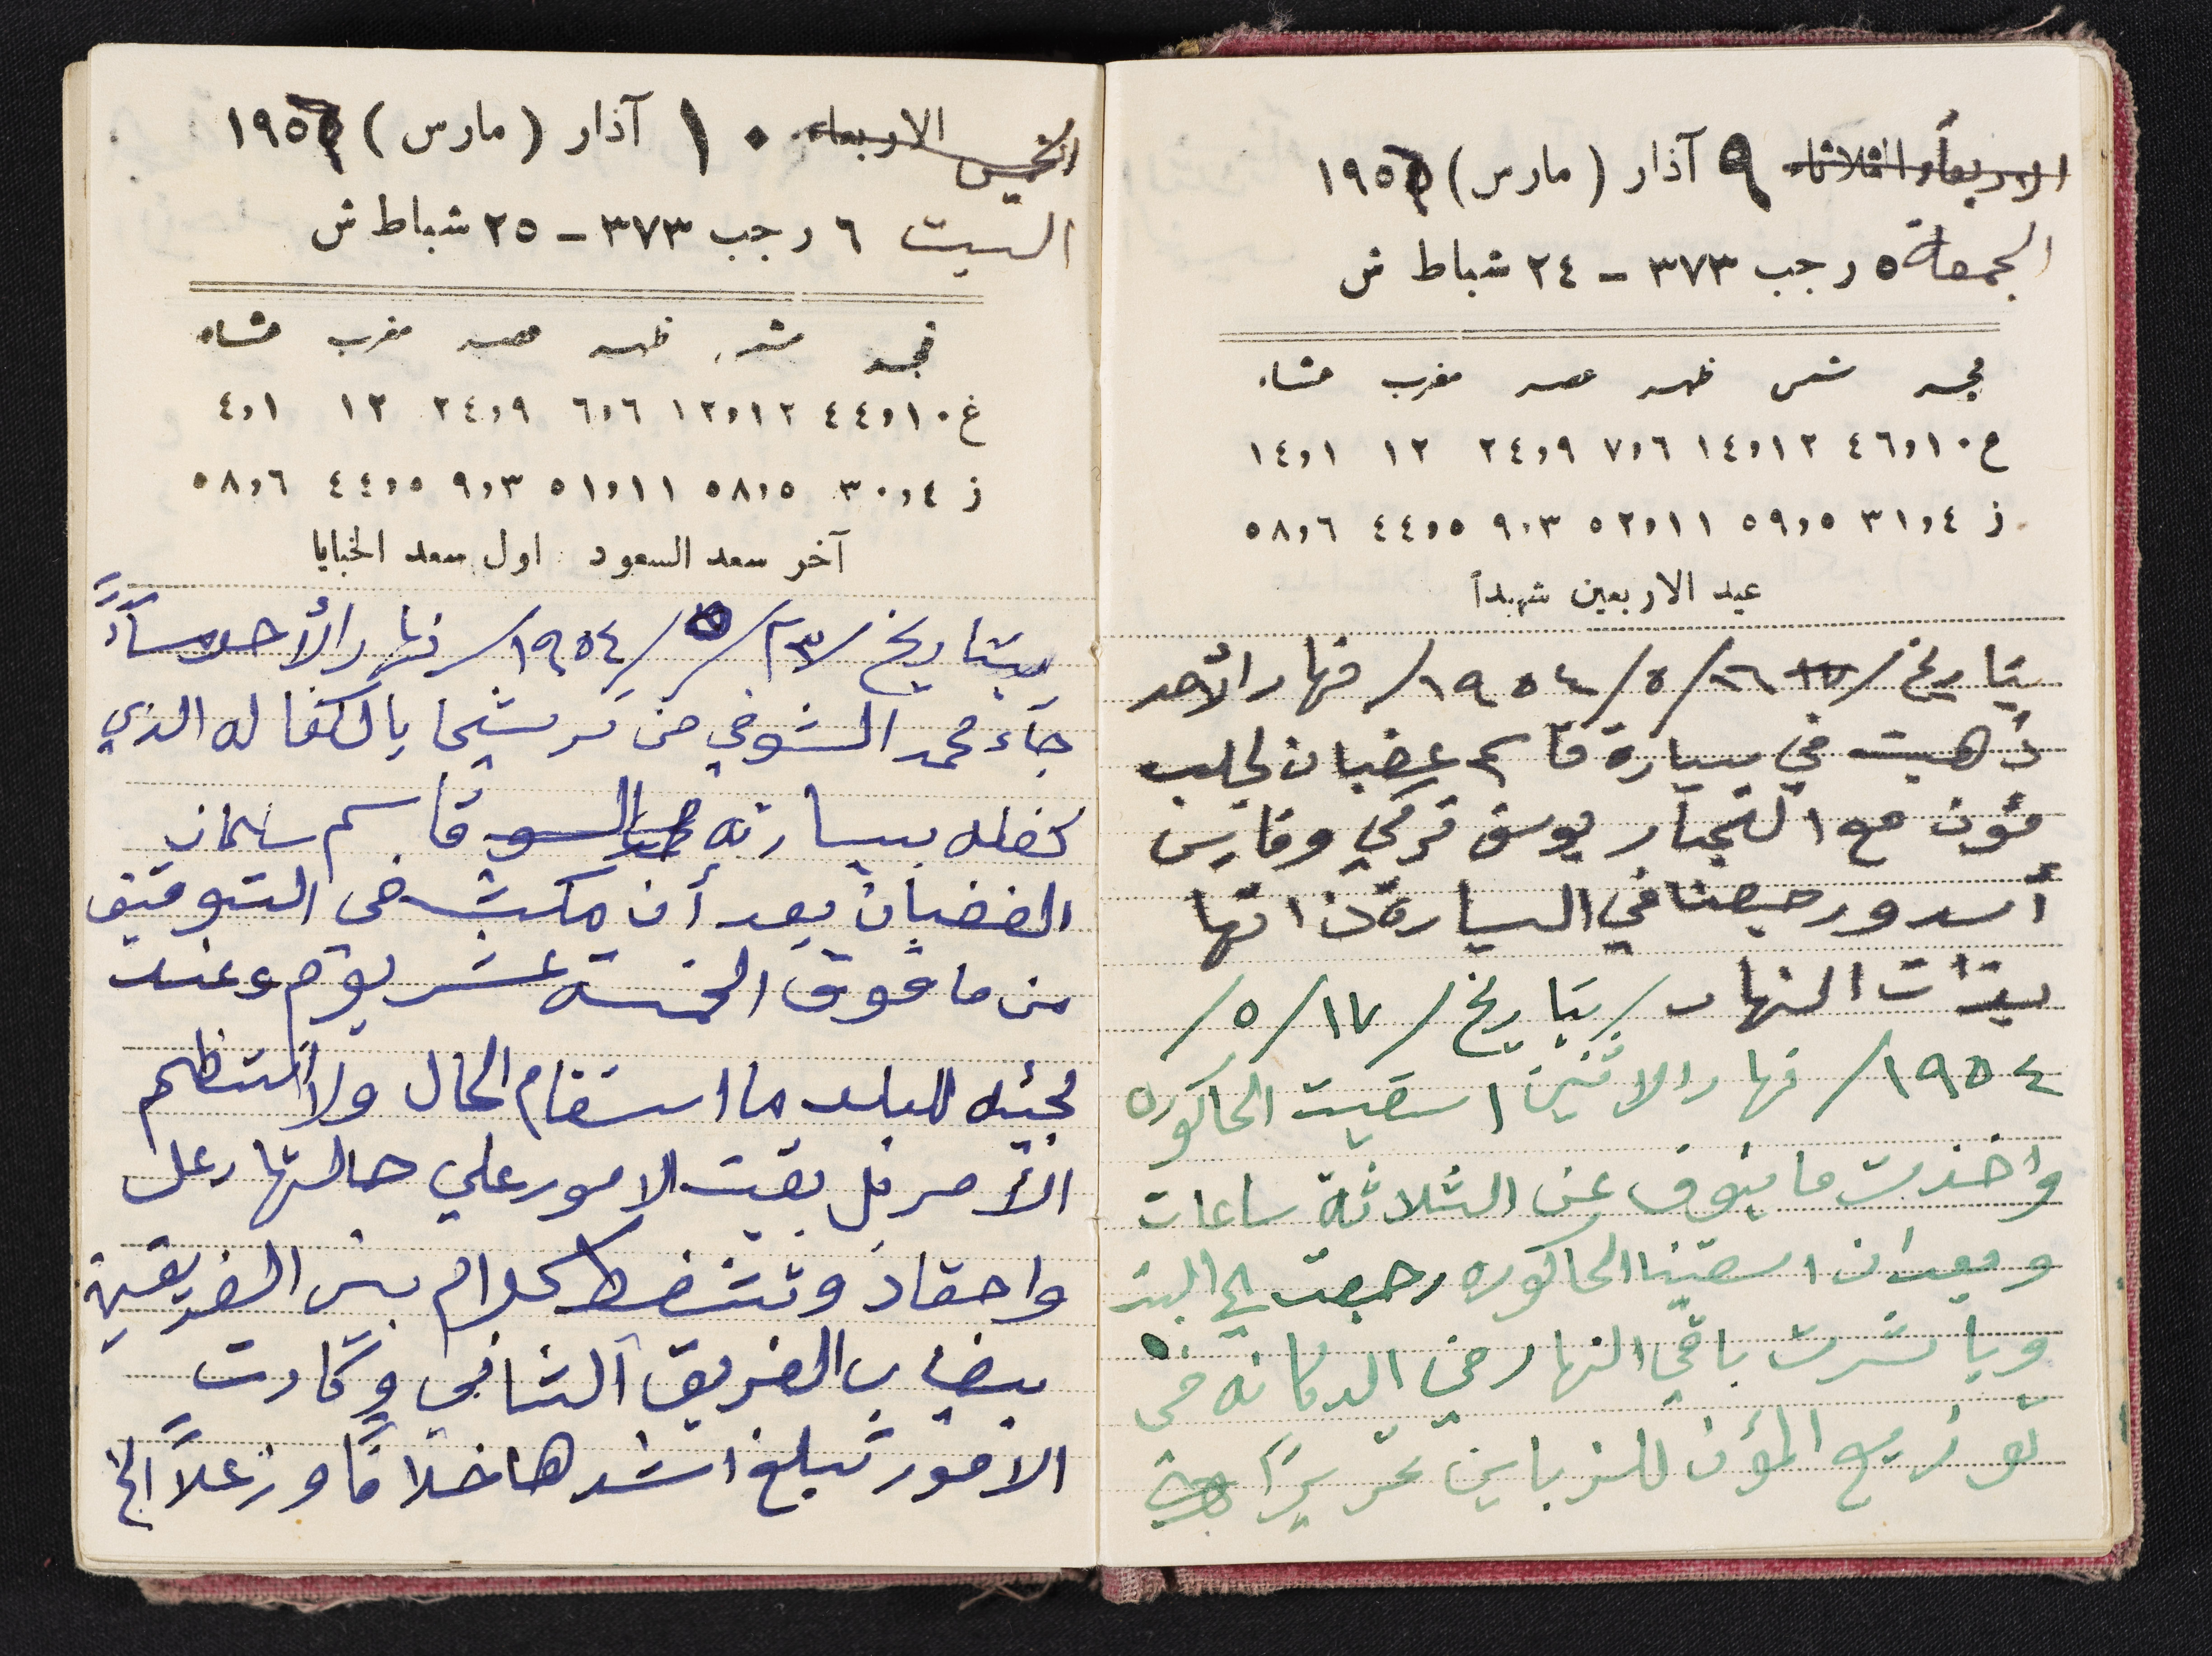 الاربعاء الثلاثاء ٩ آذار (مارس) ١٩٥
الجمعة ٥ رجب ٣٧٣ - ٢٤ شباط ش
فجر شمس ظهر عصر مغرب عشاء
ع ٤٦,١٠ ١٤,١٢ ٧,٦ ٢٤,٩ ١٢ ١٤,١
ز ٣١,٤ ٥٩,٥ ٥٢,١١ ٩,٣ ٤٤,٥ ٥٨,٦
عيد الاربعين شهيداً
بتاريخ /١٦/٥/١٩٥٤/ نهار الأحد
ذهبت في سيارة قاسم غضبان لجلب
مؤن مع التجار يوسف تركي وفارس
أسد ورجعنا في السيارة ذاتها
بذات النهار / بتاريخ /١٧/٥/
١٩٥٤/ نهار الاثنين اسقيت الحاكوره
واخذت ما ينوف عن الثلاثة ساعات
وبعد ان اسقينا الحاكوره رجعت الى البيت
وباشرت باقي النهار في الدكانه في
توزيع المؤن للزباين تحريراً
الخميس الاربعاء ١٠ آذار (مارس) ١٩٥
السبت ٦ رجب ٣٧٣ - ٢٥ شباط ش
فجر شمس ظهر عصر مغرب عشاء
غ ٤٤,١٠ ١٢,١٢ ٦,٦ ٢٤,٩ ١٢ ٤,١
ز ٣٠,٤ ٥٨,٥ ٥١,١١ ٩,٣ ٤٤,٥ ٥٨,٦
آخر سعد السعود اول سعد الخبايا
بتاريخ /٢٣/٥/١٩٥٤/ نهار الأحد مساءً
جاء محمد الشوفي من ترشيحا بالكفاله الذي
كفله بسيارته قاسم سلمان
الغضبان بعد أن مكث في التوقيف
من ما فوق الخمسة عشر يوم وعند
مجيئه للبلد ما استقام الحال ولا انتظم
الأمر بل بقيت الامور على حالتها زعل
واحقاد وتنشط كلام بين الفريقين
بغياب الفريق الثاني وكادت
الامور تبلغ اشدها خلافاً وزعلاً الخ